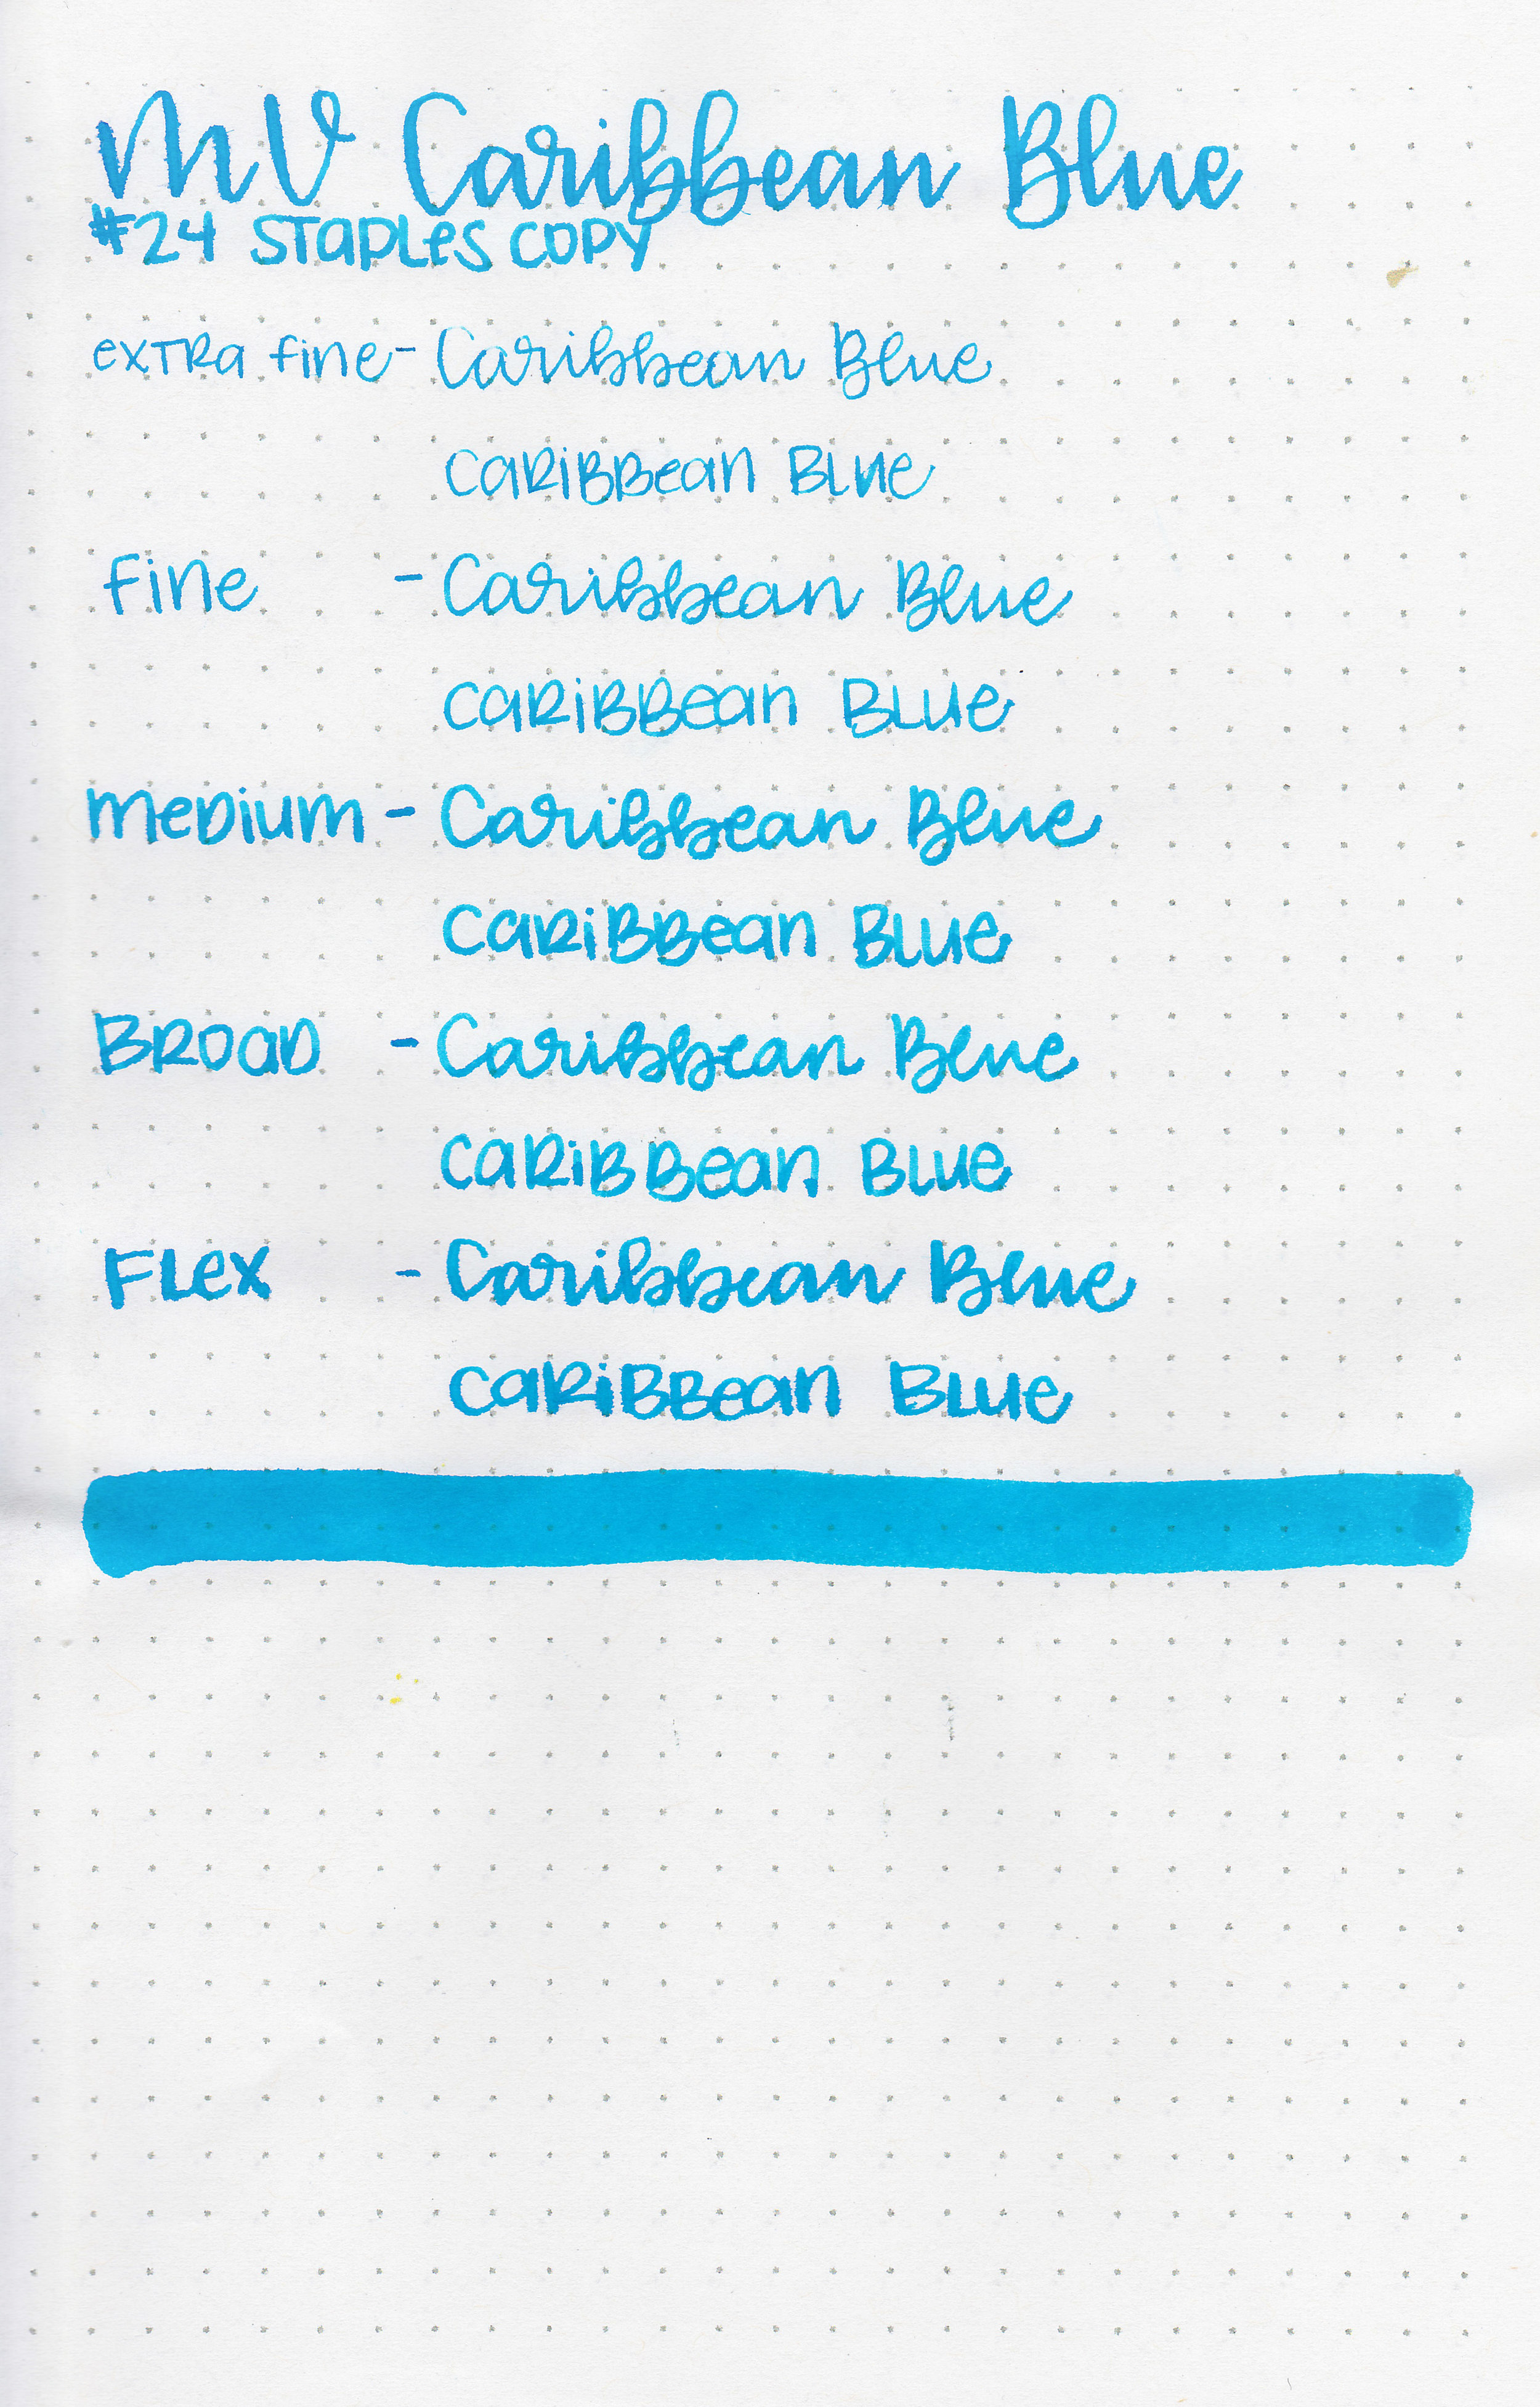 MV Caribbean Blue
#24 STAPLES COPY
extra fine - Caribbean Blue
Caribbean Blue
Fine - Caribbean Blue
Caribbean Blue
Medium - Caribbean Blue
Caribbean Blue
Broad - Caribbean Blue
Caribbean Blue
Flex - Caribbean Blue
Caribbean Blue